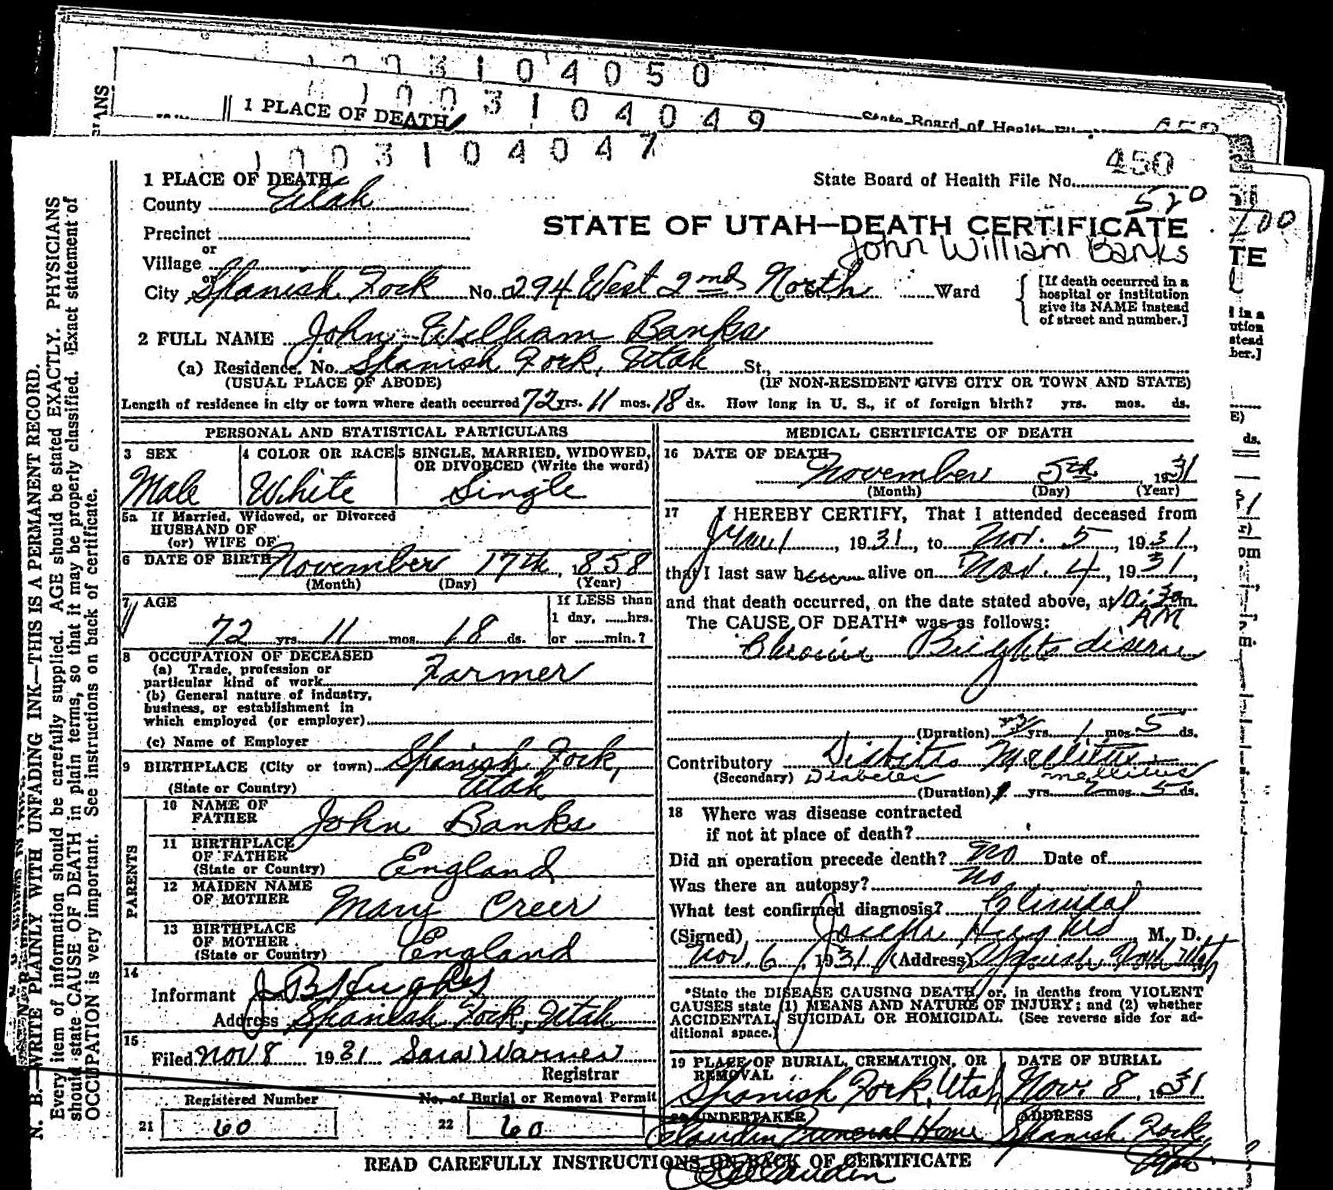 1003104050
1003104049
1 PLACE OF DEATH
State Board of Health File
1003104047
450
1 PLACE OF DEATH
State Board of Health File No.
County Utah
520
STATE OF UTAH—DEATH CERTIFICATE
John William Banks
Precinct
or
Village
or
City Spanish Fork No. 294 West 2nd North Ward
[If death occurred in a hospital or institution give its NAME instead of street and number.]
2 FULL NAME John William Banks
(a) Residence. No. Spanish Fork, Utah St.,
(USUAL PLACE OF ABODE) (IF NON-RESIDENT GIVE CITY OR TOWN AND STATE)
Length of residence in city or town where death occurred 72 yrs. 11 mos. 18 ds. How long in U. S., if of foreign birth? yrs. mos. ds.
PERSONAL AND STATISTICAL PARTICULARS
3 SEX
Male
4 COLOR OR RACE
White
5 SINGLE, MARRIED, WIDOWED, OR DIVORCED (Write the word)
Single
5a If Married, Widowed, or Divorced
HUSBAND OF
(or) WIFE OF
6 DATE OF BIRTH November 17th, 1858
(Month) (Day) (Year)
7 AGE
72 yrs 11 mos 18 ds.
If LESS than
1 day, ......hrs.
or ......min.?
8 OCCUPATION OF DECEASED
(a) Trade, profession or
particular kind of work Farmer
(b) General nature of industry,
business, or establishment in
which employed (or employer)
(c) Name of Employer
9 BIRTHPLACE (City or town) Spanish Fork,
(State or Country) Utah
PARENTS
10 NAME OF FATHER John Banks
11 BIRTHPLACE OF FATHER (State or Country) England
12 MAIDEN NAME OF MOTHER Mary Creer
13 BIRTHPLACE OF MOTHER (State or Country) England
14
Informant J B Hughes
Address Spanish Fork, Utah
15
Filed Nov 8 1931 Sara Warner
Registrar
Registered Number
21 60
No. of Burial or Removal Permit
22 60
MEDICAL CERTIFICATE OF DEATH
16 DATE OF DEATH
November 5th 1931
(Month) (Day) (Year)
17 I HEREBY CERTIFY, That I attended deceased from
1931, to Nov. 5, 1931,
that I last saw h alive on Nov. 4, 1931,
and that death occurred, on the date stated above, at 10:30 m.
AM
The CAUSE OF DEATH* was as follows:
Chronic Brights disease
(Duration) yrs. 1 mos. 5 ds.
Contributory Diabitis Mellitus
(Secondary) Diabetes mellitus
(Duration) yrs. 2 mos. 5 ds.
18 Where was disease contracted
if not at place of death?
Did an operation precede death? No Date of
Was there an autopsy? No
What test confirmed diagnosis? Clinical
(Signed) Joseph Hughes M. D.
Nov. 6, 1931 (Address) Spanish Fork Utah
*State the DISEASE CAUSING DEATH, or, in deaths from VIOLENT
CAUSES state (1) MEANS AND NATURE OF INJURY; and (2) whether
ACCIDENTAL, SUICIDAL OR HOMICIDAL. (See reverse side for ad-
ditional space.)
19 PLACE OF BURIAL, CREMATION, OR REMOVAL
Spanish Fork, Utah
DATE OF BURIAL
Nov. 8, 1931
20 UNDERTAKER
Claudin Funeral Home
ADDRESS
Spanish Fork
Utah
READ CAREFULLY INSTRUCTIONS ON BACK OF CERTIFICATE
N. B.—WRITE PLAINLY WITH UNFADING INK—THIS IS A PERMANENT RECORD.
Every item of information should be carefully supplied. AGE should be stated EXACTLY. PHYSICIANS
should state CAUSE OF DEATH in plain terms, so that it may be properly classified. Exact statement of
OCCUPATION is very important. See instructions on back of certificate.